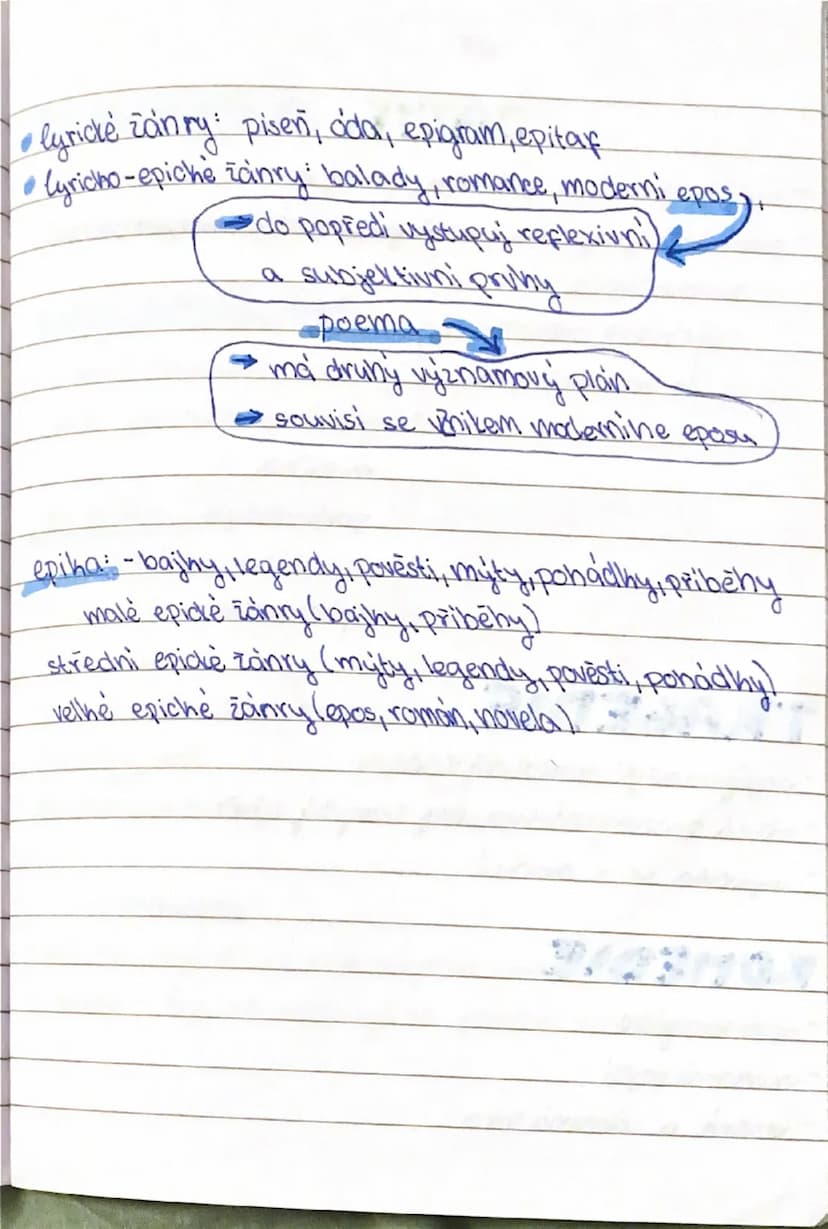 • lyrické žánry: píseň, óda, epigram, epitaf
• lyricko-epické žánry: balady, romance, moderní epos,
→ do popředí vystupuj reflexivní
a subjektivní prvky
poema
→ má druhý významový plán
→ souvisí se vznikem moderního eposu
epika: - bajky, legendy, pověsti, mýty, pohádky, příběhy
malé epické žánry (bajky, příběhy)
střední epické žánry (mýty, legendy, pověsti, pohádky)
velké epické žánry (epos, román, novela)